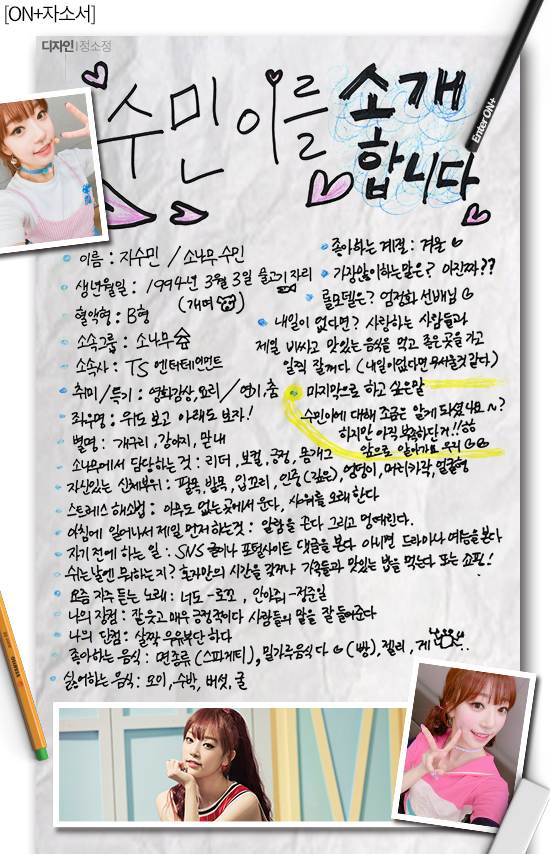 [ON+자소서]
디자인 | 정소정
수민이를 소개
합니다
Enter ON+
이름 : 지수민 / 소나무 수민
생년월일 : 1994년 3월 3일 물고기자리
(개띠)
혈액형 : B형
소속그룹 : 소나무
소속사 : TS 엔터테인먼트
취미/특기 : 영화감상, 요리 / 연기, 춤
좌우명 : 위도 보고 아래도 보자!
별명 : 개구리, 강아지, 맘내
소나무에서 담당하는 것 : 리더, 보컬, 긍정, 몸개그
자신있는 신체부위 : 팔목, 발목, 입꼬리, 인중(깊은), 엉덩이, 머리카락, 얼굴형
스트레스 해소법 : 아무도 없는곳에서 운다, 샤워를 오래한다
아침에 일어나서 제일 먼저 하는것 : 알람을 끈다 그리고 멍때린다.
자기 전에 하는 일 : SNS 글이나 포털사이트 댓글을 본다 아니면 드라마나 예능을 본다
쉬는날엔 뭐하는지? 혼자만의 시간을 갖거나 가족들과 맛있는 밥을 먹는다 또는 쇼핑!
요즘 자주 듣는 노래 : 너도 - 로꼬, 안아줘 - 정준일
나의 장점 : 잘 웃고 매우 긍정적이다 사람들의 말을 잘 들어준다
나의 단점 : 살짝 우유부단 하다
좋아하는 음식 : 면종류 (스파게티), 밀가루음식 다 (빵), 젤리, 게
싫어하는 음식 : 오이, 수박, 버섯, 굴
좋아하는 계절 : 겨울
가장많이하는말은? 아진짜??
롤모델은? 엄정화 선배님
내일이 없다면? 사랑하는 사람들과
제일 비싸고 맛있는 음식을 먹고 좋은곳을 가고
일찍 잘꺼다 (내일이없다면 무서울것같다)
마지막으로 하고싶은말
수민이에 대해 조금은 알게 되셨나요~?
하지만 아직 부족하단거!! ㅎㅎ
앞으로 알아가요 우리